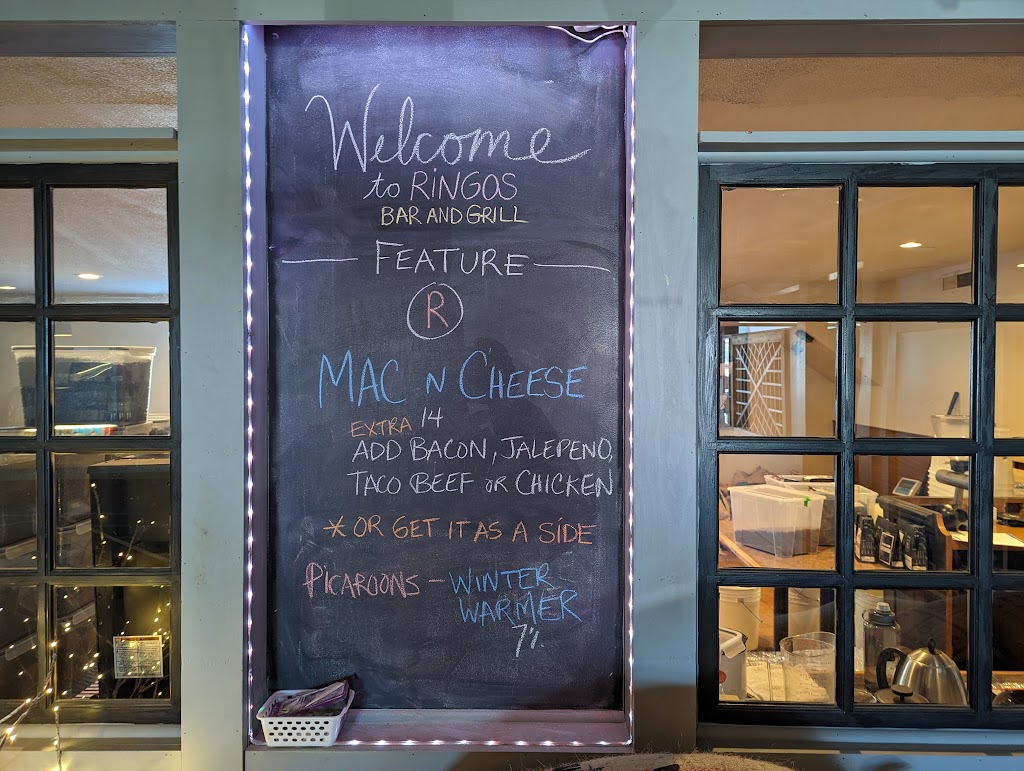 Welcome
to RINGOS
BAR AND GRILL
FEATURE
R
MAC N CHEESE
14
EXTRA
ADD BACON, JALEPENO,
TACO BEEF OR CHICKEN
* OR GET IT AS A SIDE
PICAROONS - WINTER
WARMER
7%